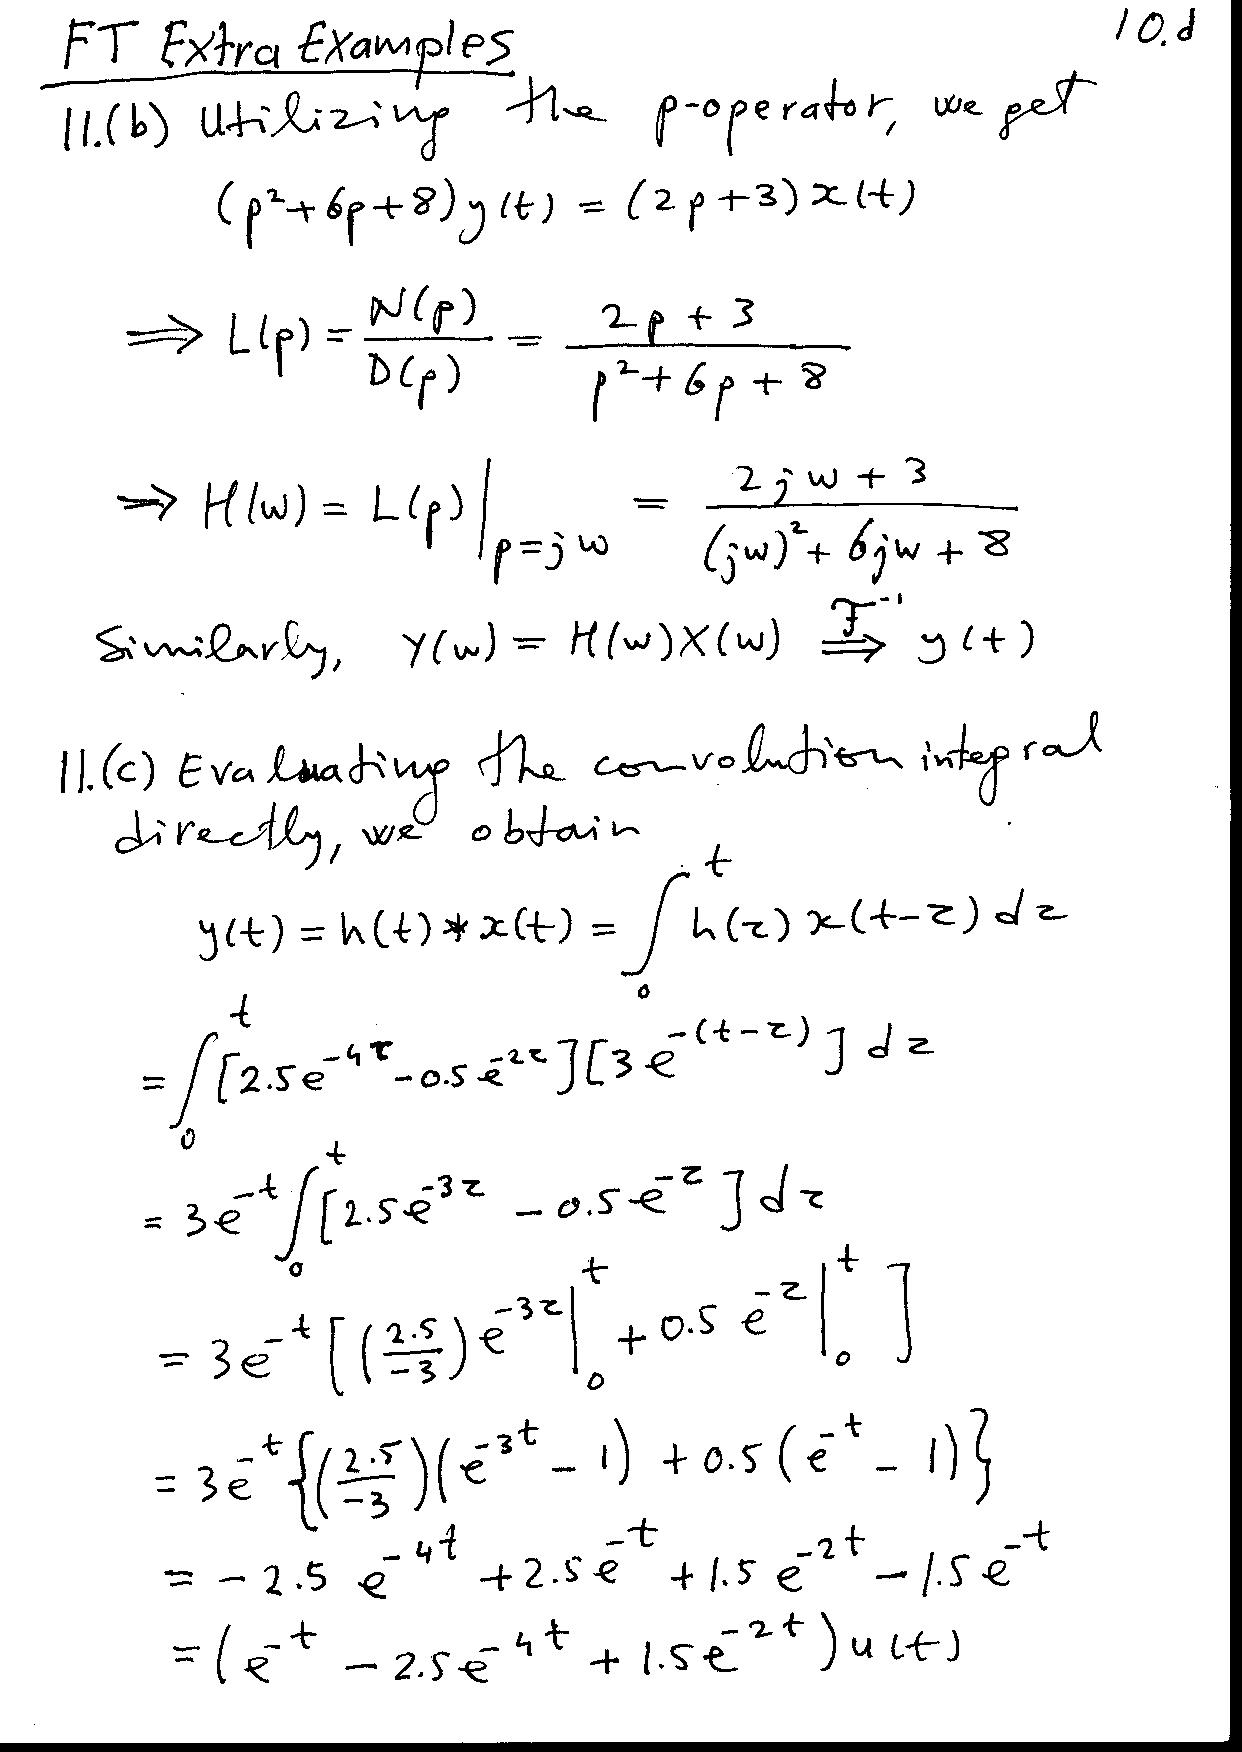 10.d
FT Extra Examples
11.(b) Utilizing the p-operator, we get
(p²+6p+8)y(t) = (2p+3)x(t)
⟹ L(p) = N(p)/D(p) = (2p+3)/(p²+6p+8)
⟹ H(w) = L(p)|_{p=jw} = (2jw+3)/((jw)²+6jw+8)
Similarly, Y(w) = H(w)X(w) ⟹^{ℱ⁻¹} y(t)
11.(c) Evaluating the convolution integral
directly, we obtain
y(t) = h(t)*x(t) = ∫_0^t h(τ)x(t-τ)dτ
= ∫_0^t [2.5e^{-4τ}-0.5e^{-2τ}][3e^{-(t-τ)}]dτ
= 3e^{-t}∫_0^t [2.5e^{-3τ} - 0.5e^{-τ}]dτ
= 3e^{-t}[(2.5/-3)e^{-3τ}|_0^t + 0.5e^{-τ}|_0^t]
= 3e^{-t}{(2.5/-3)(e^{-3t} - 1) + 0.5(e^{-t} - 1)}
= -2.5e^{-4t} + 2.5e^{-t} + 1.5e^{-2t} - 1.5e^{-t}
= (e^{-t} - 2.5e^{-4t} + 1.5e^{-2t})u(t)